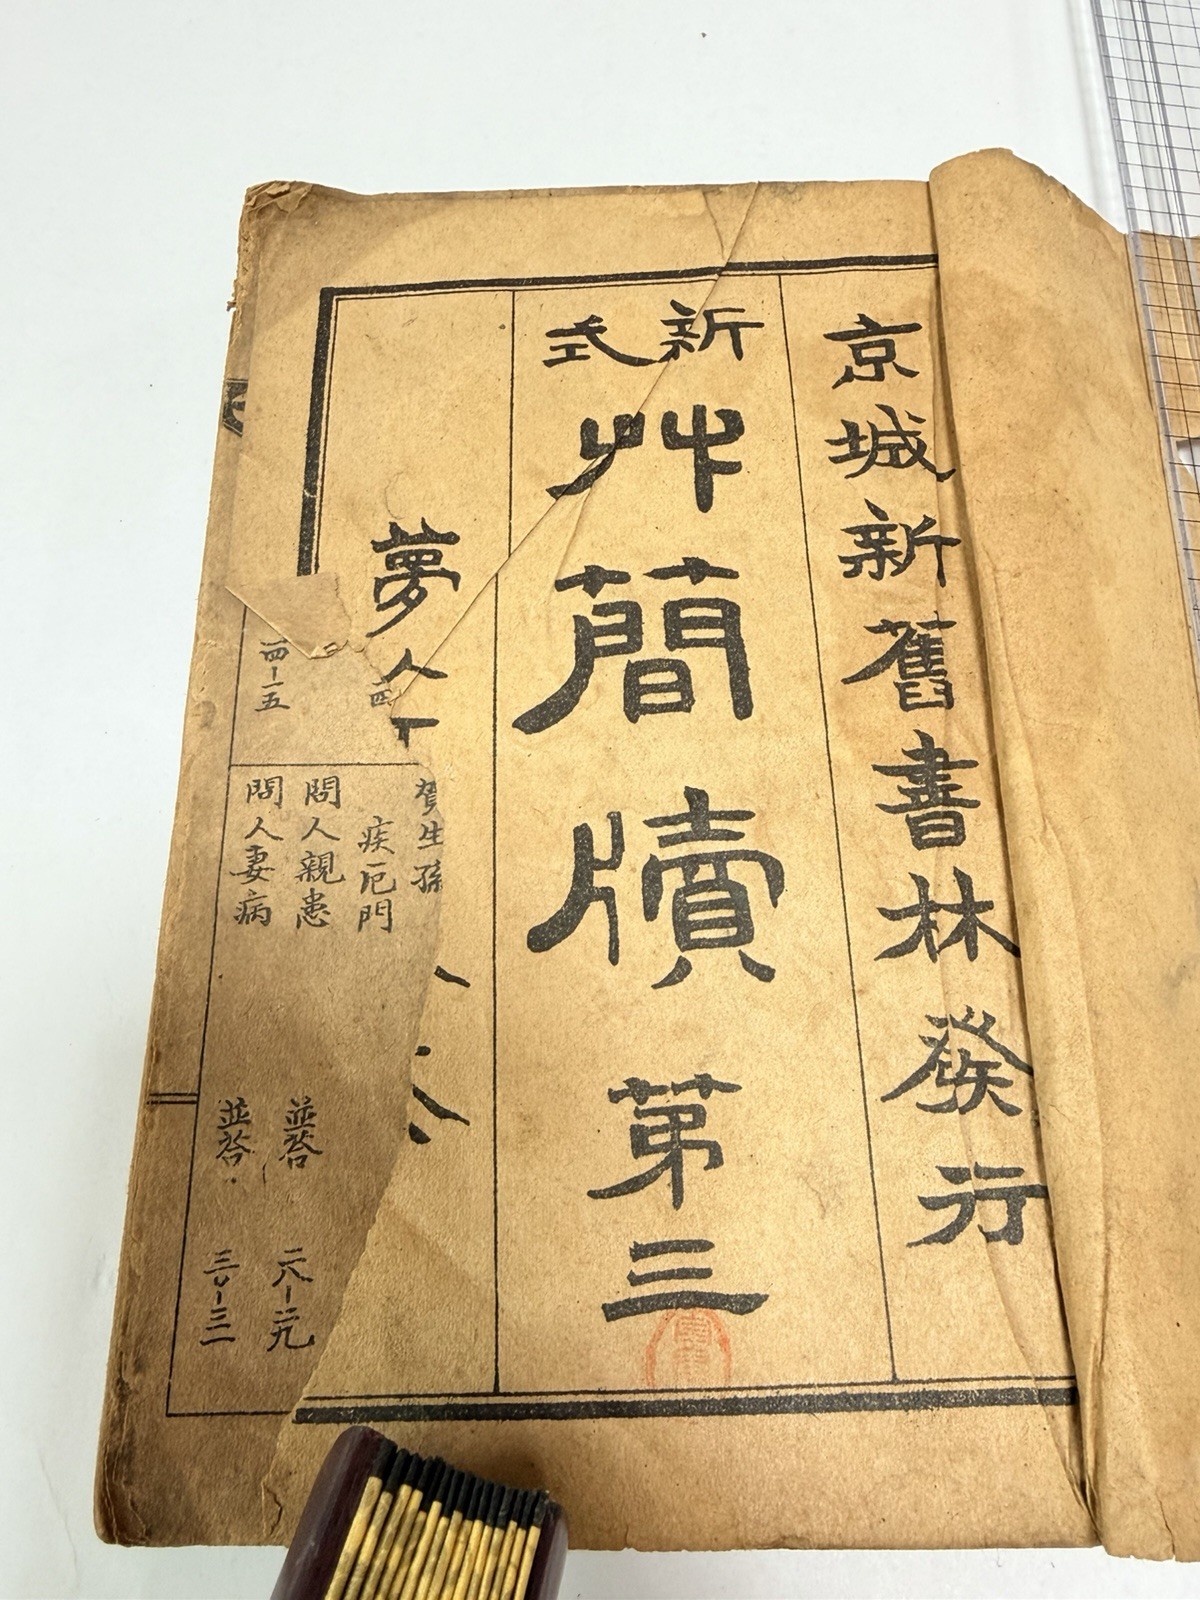 京城新舊書林發行
新式
艸簡牘第三
夢人
賀生孫
疾厄門
問人親患 並答 二八-二九
問人妻病 並答 三〇-三一
四-一五